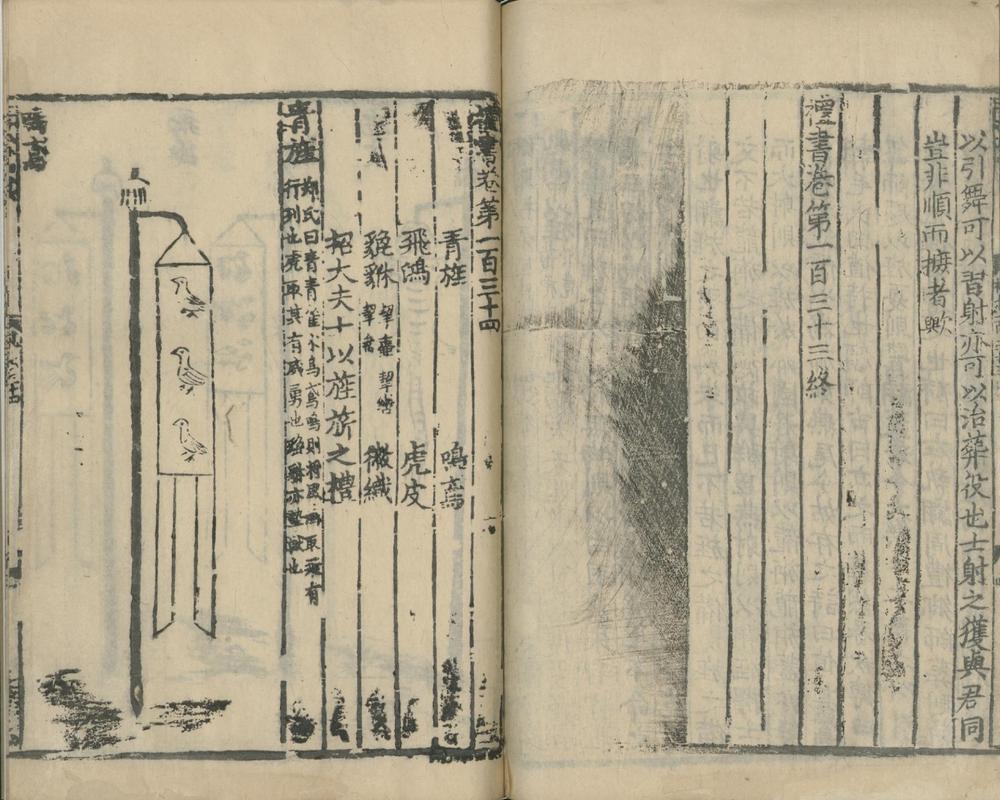 以引舞可以習射亦可以治葬役也士射之獲與君同
豈非順而摭者歟
禮書卷第一百三十三終
禮書卷第一百三十四
青旌 鳴鳶
飛鴻 虎皮
貔貅 挈壺 挈轡 挈畚 徽織
招大夫士以旌旂之禮
青旌 鄭氏曰青青雀水鳥鳶鳴則將風鴻取飛有
行列也虎取其有威勇也貔貅亦摯獸也
鳴鳶